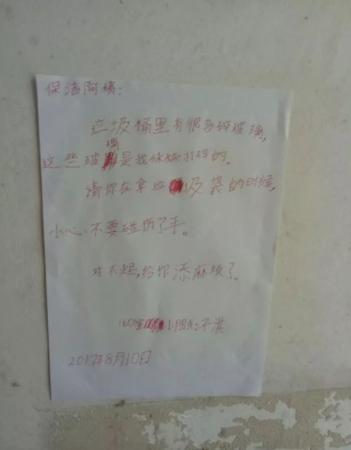 保洁阿姨:
垃圾桶里有很多碎玻璃,
这些玻璃是我妹妹打碎的。
请你在拿垃圾袋的时候,
小心,不要碰伤了手。
对不起,给你添麻烦了。
2017年8月10日